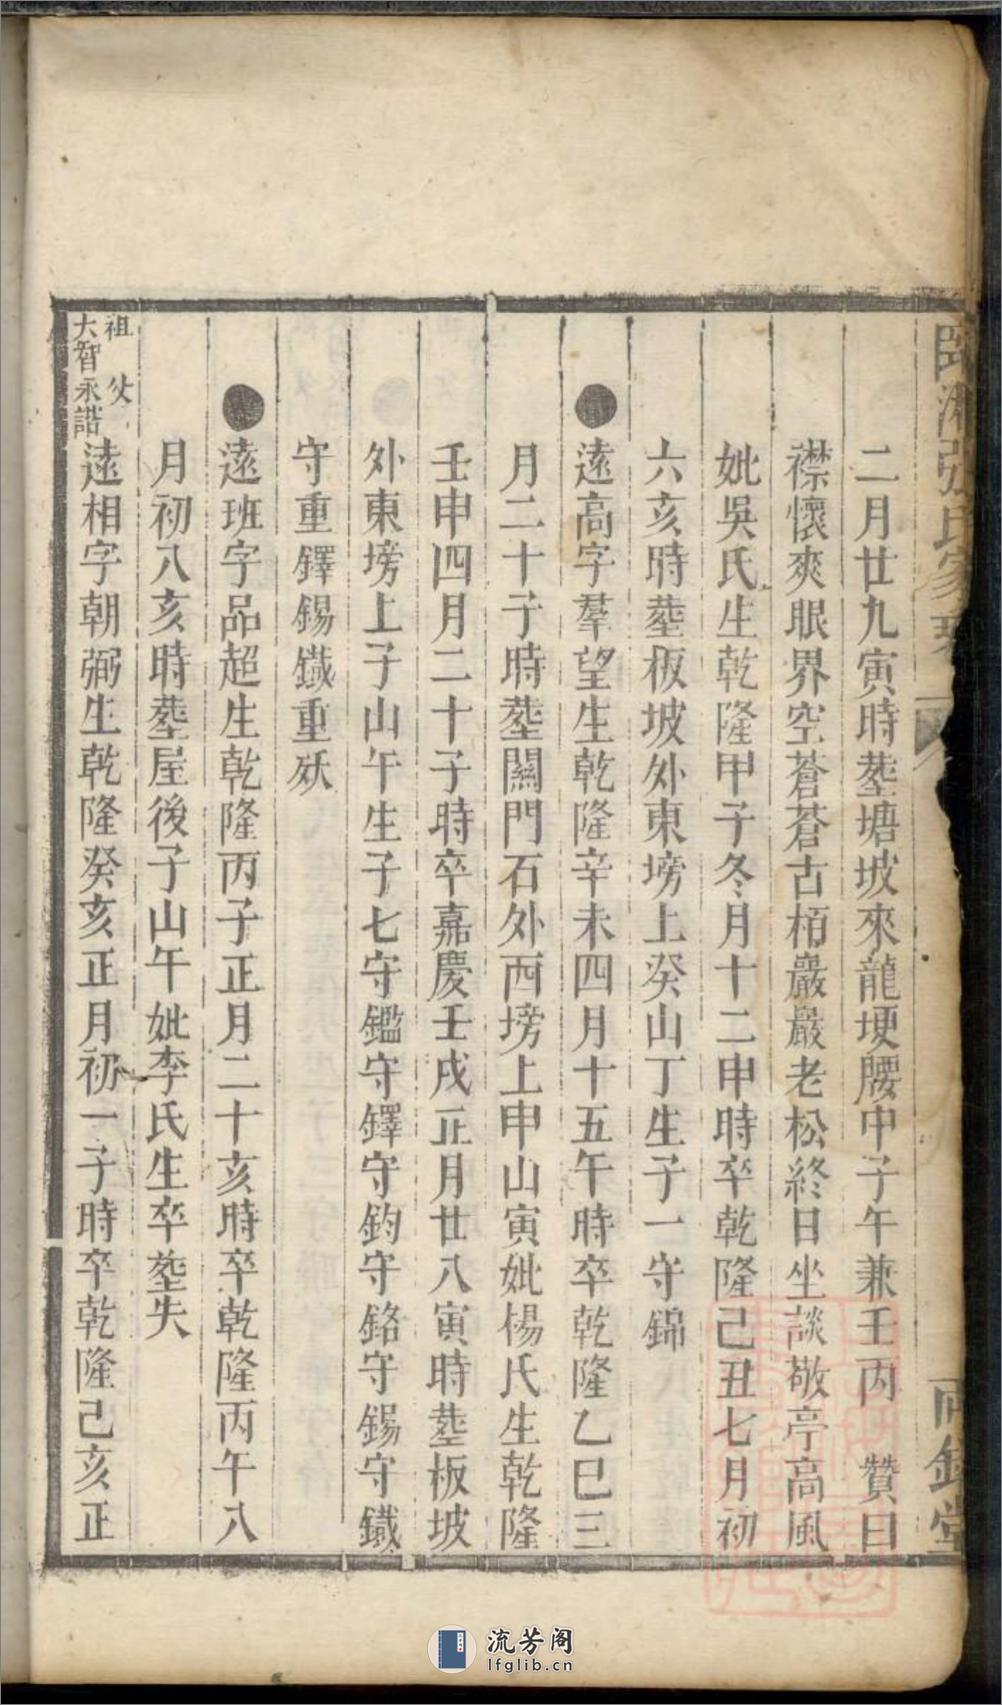 張氏家
兩銘堂
二月廿九寅時塟塘坡來龍埂腰中子午兼壬丙 贊曰
襟懷爽眼界空蒼蒼古栢巖巖老松終日坐談敬亭高風
妣吳氏生乾隆甲子冬月十二申時卒乾隆己丑七月初
六亥時塟板坡外東塝上癸山丁生子一守錦
遠高字羣望生乾隆辛未四月十五午時卒乾隆乙巳三
月二十子時塟關門石外西塝上申山寅妣楊氏生乾隆
壬申四月二十子時卒嘉慶壬戌正月廿八寅時塟板坡
外東塝上子山午生子七守鑑守鐸守鈞守鉻守錫守鐵
守重鐸錫鐵重殀
遠班字品超生乾隆丙子正月二十亥時卒乾隆丙午八
月初八亥時塟屋後子山午妣李氏生卒塟失
祖父
大智永誥
遠相字朝弼生乾隆癸亥正月初一子時卒乾隆己亥正
流芳阁
lfglib.cn